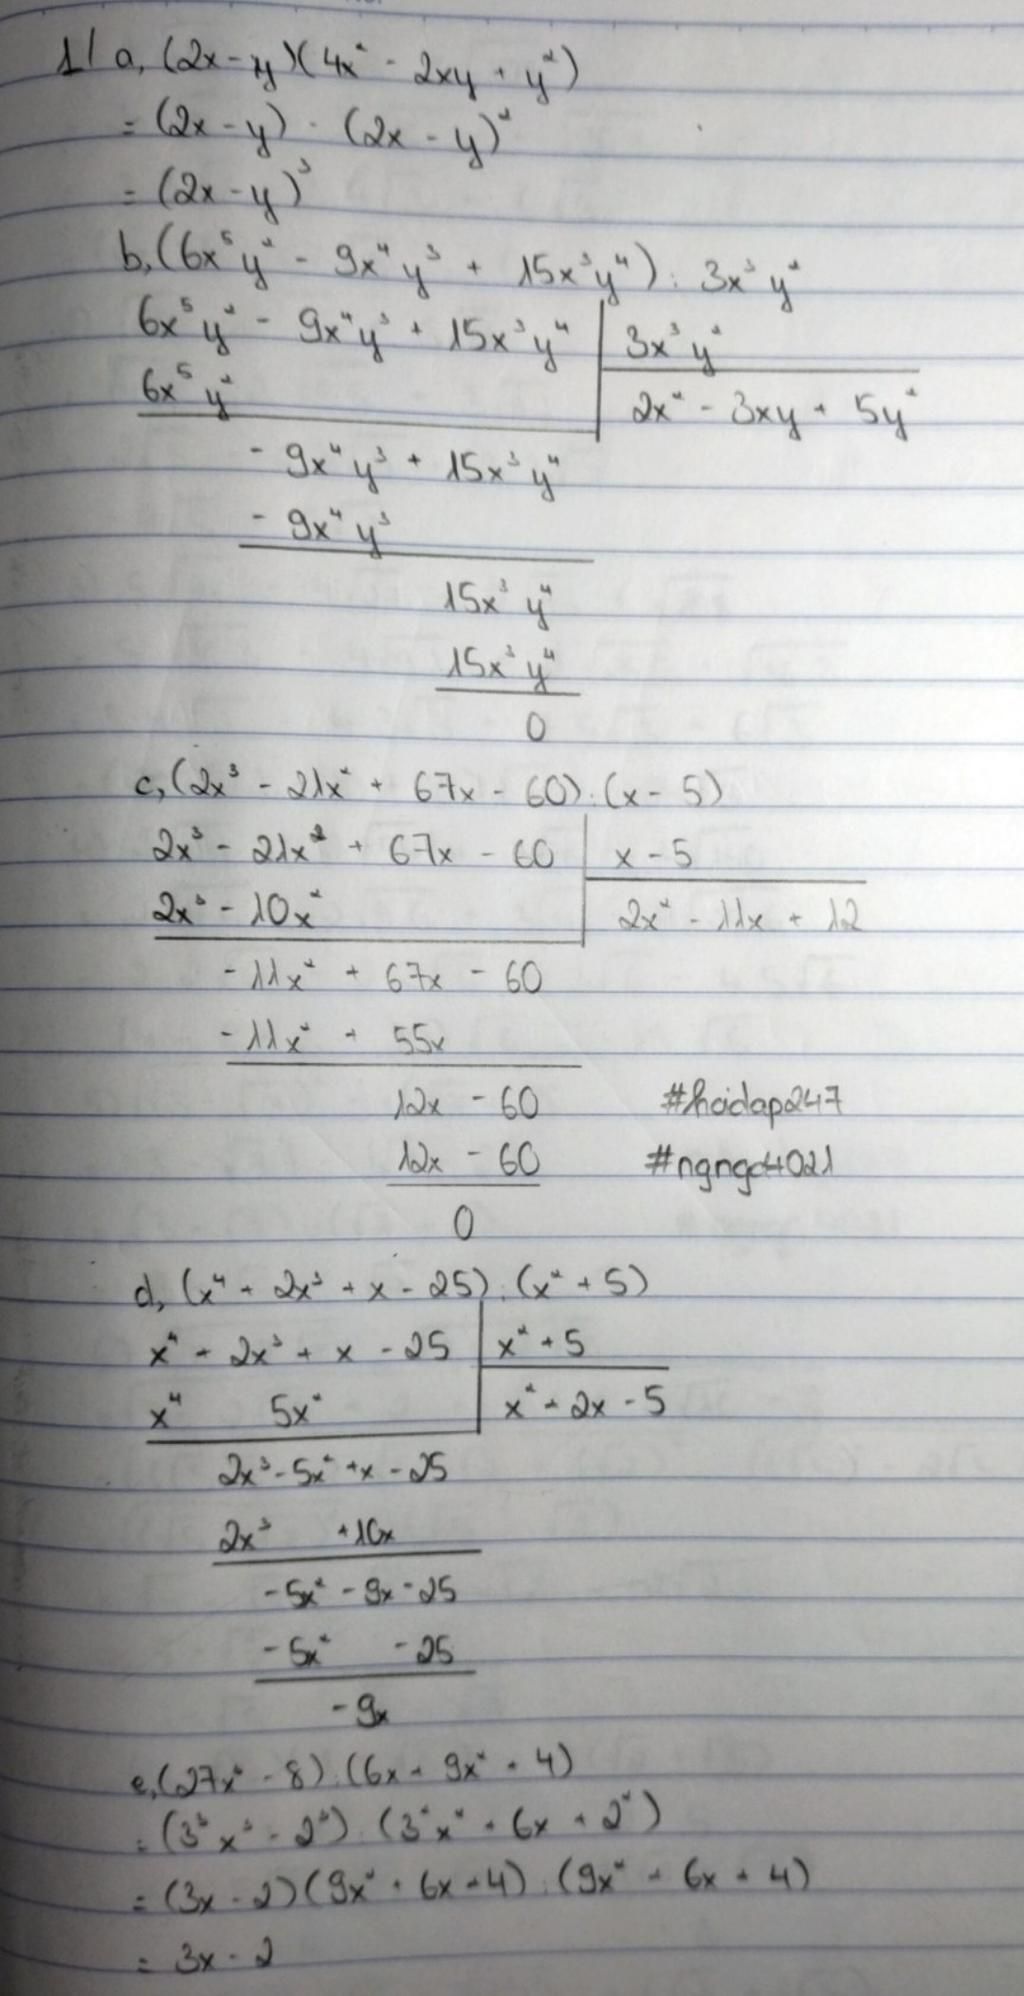 1/ a, (2x - y)(4x² - 2xy + y²)
= (2x - y) . (2x - y)²
= (2x - y)³
b, (6x⁵y² - 9x⁴y³ + 15x³y⁴) : 3x³y²
6x⁵y² - 9x⁴y³ + 15x³y⁴ | 3x³y²
6x⁵y² | 2x² - 3xy + 5y²
- 9x⁴y³ + 15x³y⁴
- 9x⁴y³
15x³y⁴
15x³y⁴
0
c, (2x³ - 21x² + 67x - 60) : (x - 5)
2x³ - 21x² + 67x - 60 | x - 5
2x³ - 10x² | 2x² - 11x + 12
- 11x² + 67x - 60
- 11x² + 55x
12x - 60 #hoidap247
12x - 60 #ngngc4021
0
d, (x⁴ + 2x³ + x - 25) : (x² + 5)
x⁴ + 2x³ + x - 25 | x² + 5
x⁴ 5x² | x² + 2x - 5
2x³ - 5x² + x - 25
2x³ + 10x
- 5x² - 9x - 25
- 5x² - 25
- 9x
e, (27x³ - 8) : (6x + 9x² + 4)
= (3³x³ - 2³) : (3²x² + 6x + 2²)
= (3x - 2)(9x² + 6x + 4) : (9x² + 6x + 4)
= 3x - 2